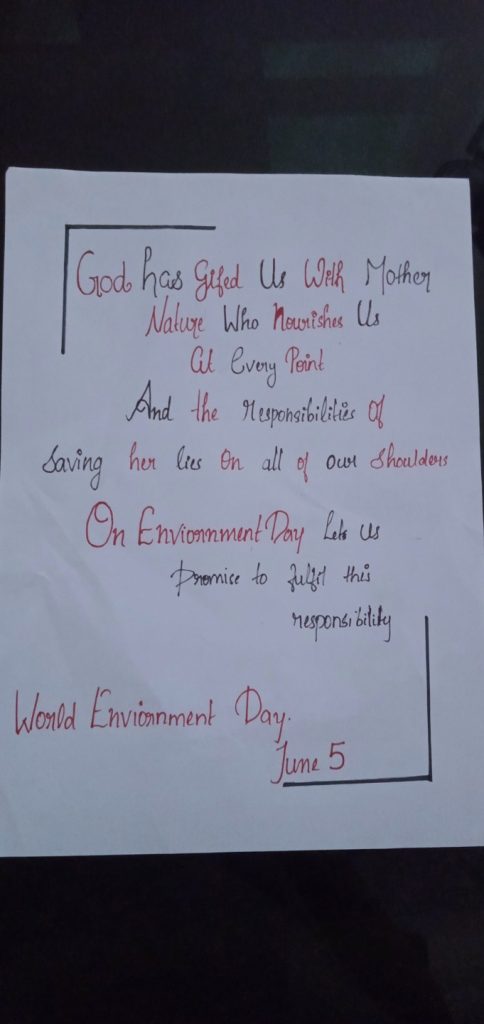 God has Gifed Us With Mother
Nature Who Nourishes Us
At Every Point
And the Responsibilities Of
Saving her lies On all of our Shoulders
On Enviornment Day Lets Us
Promise to fulfil this
responsibility
World Enviornment Day.
June 5